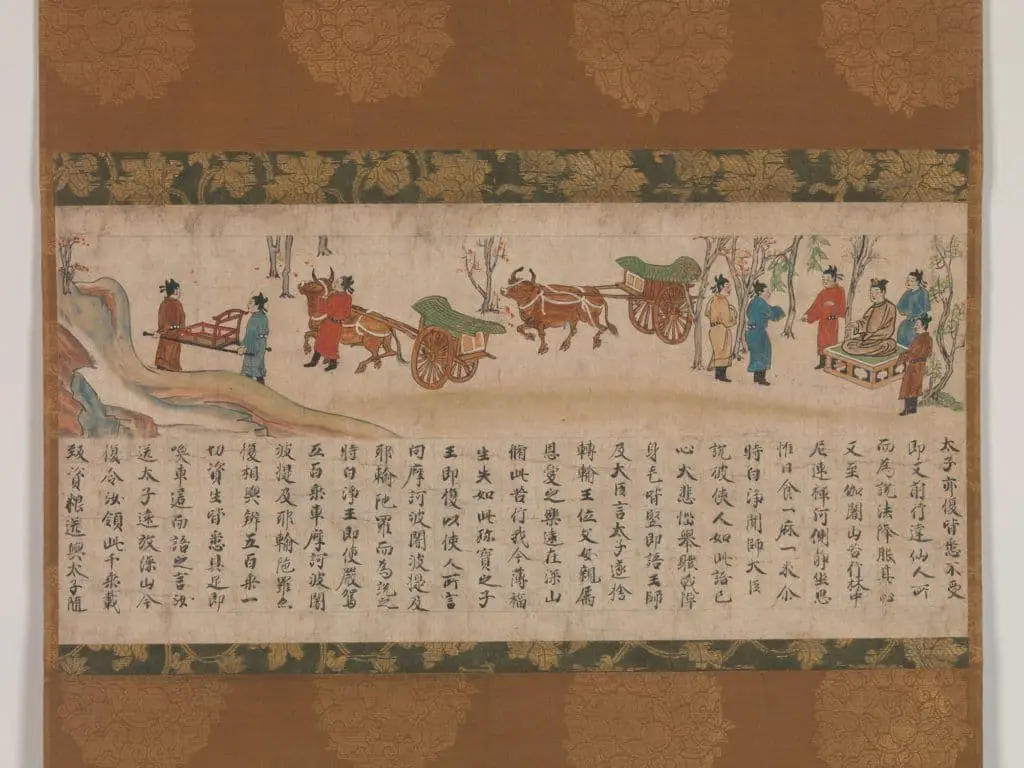 太子亦復皆悉不受
即又前行達仙人所
而為說法降服其心
又至伽闍山苦行林中
尼連禪河側静坐思
惟日食一麻一米尒
時白淨聞師大臣
說彼使人如此語已
心大悲惱舉體戰掉
身毛皆竪即語王師
及大臣言太子遂捨
轉輪王位父母親属
恩愛之樂遠在深山
脩此苦行我今薄福
生失如此珎寶之子
王即復以使人所言
向摩訶波闍波提及
耶輸陁羅而為說之
時白淨王即便嚴駕
五百乘車摩訶波闍
波提及耶輸陁羅亦
復相與辨五百乘一
切資生皆悉具足即
喚車匿而語之言汝
送太子遠放深山今
復令汝領此千乘載
致資粮送與太子隨